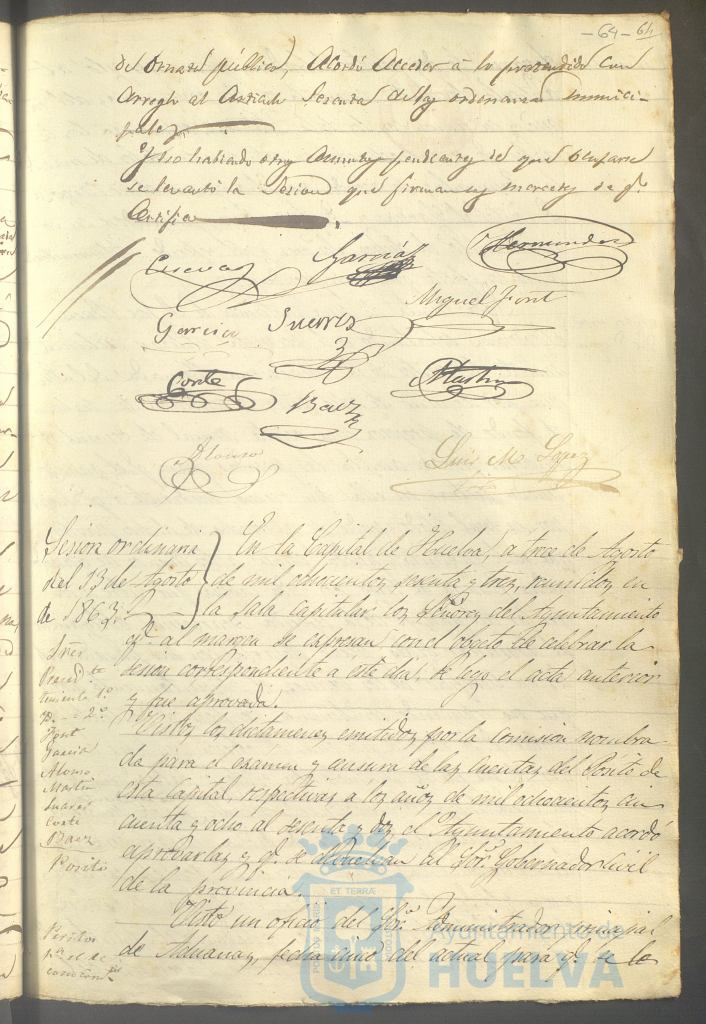 -64- 64
de Ornato público, Acordó Acceder á lo pretendido con
arreglo al Articulo Sesenta de las ordenanzas munici-
pales.
Y no habiendo otros asuntos pendientes de que Ocuparse
se levantó la Sesion que firman sus mercedes de q.e
Certifico
Cuevas
García
Hernandez
Garcia
Suarez
Miguel Font
Conte
Baez
Martin
Alonso
Luis M. Lopez
Sesion ordinaria
del 13 de Agosto
de 1863.
En la Capital de Huelva, a trece de Agosto
de mil ochocientos sesenta y tres, reunidos en
la Sala Capitular los Señores del Ayuntamiento
q.e al margen se expresan con el objeto de celebrar la
sesion correspondiente a este dia, se leyó el acta anterior
y fue aprovada.
Sres
Presid.te
teniente 1.º
Yd. 2.º
Font
Garcia
Alonso
Martin
Suarez
Conte
Baez
Posito
Vistos los dictamenes emitidos por la comision nombra-
da para el examen y censura de las cuentas del Posito de
esta Capital, respectivas a los años de mil ochocientos cin
cuenta y ocho al sesenta y dos, el Ayuntamiento acordó
aprobarlas y q.e se debuelvan al Sor. Gobernador Civil
de la provincia.
Peritos
p.a el re
conocim.to
Visto un oficio del Sor. Administrador principal
de Aduanas, fecha cinco del actual para q.e se le
ET TERRÆ
Ayuntamiento de
HUELVA